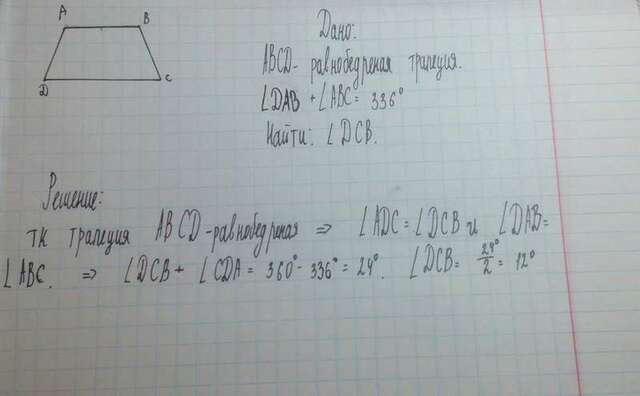 A B
D C
Дано:
ABCD- равнобедреная трапеция.
∠DAB + ∠ABC = 336°
Найти: ∠DCB.
Решение:
тк трапеция ABCD-равнобедреная => ∠ADC = ∠DCB и ∠DAB=
∠ABC. => ∠DCB + ∠CDA = 360° - 336° = 24°. ∠DCB = 24°/2 = 12°